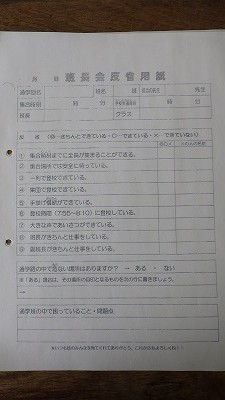 月　班長会反省用紙
通学団名　班名　担当の先生　先生
集合時刻　時　分　学校到着時刻　時　分
班長　クラス
反　省　（◎…きちんとできている・○…できている・×…できていない）
①集合時刻までに全員が集まることができる。
②集合場所では安全に待っている。
③一列で登校できている。
④集団で登校できている。
⑤手信号信号ができている。
⑥登校時間（7:55～8:10）に登校している。
⑦大きな声であいさつができている。
⑧班長がきちんと仕事をしている。
⑨副班長がきちんと仕事をしている。
通学路の中で危ない場所はありますか？　→　ある　・　ない
※「ある」場合は、その場所の目印となるものを次の行に書きましょう。
通学班の中で困っていること・問題点